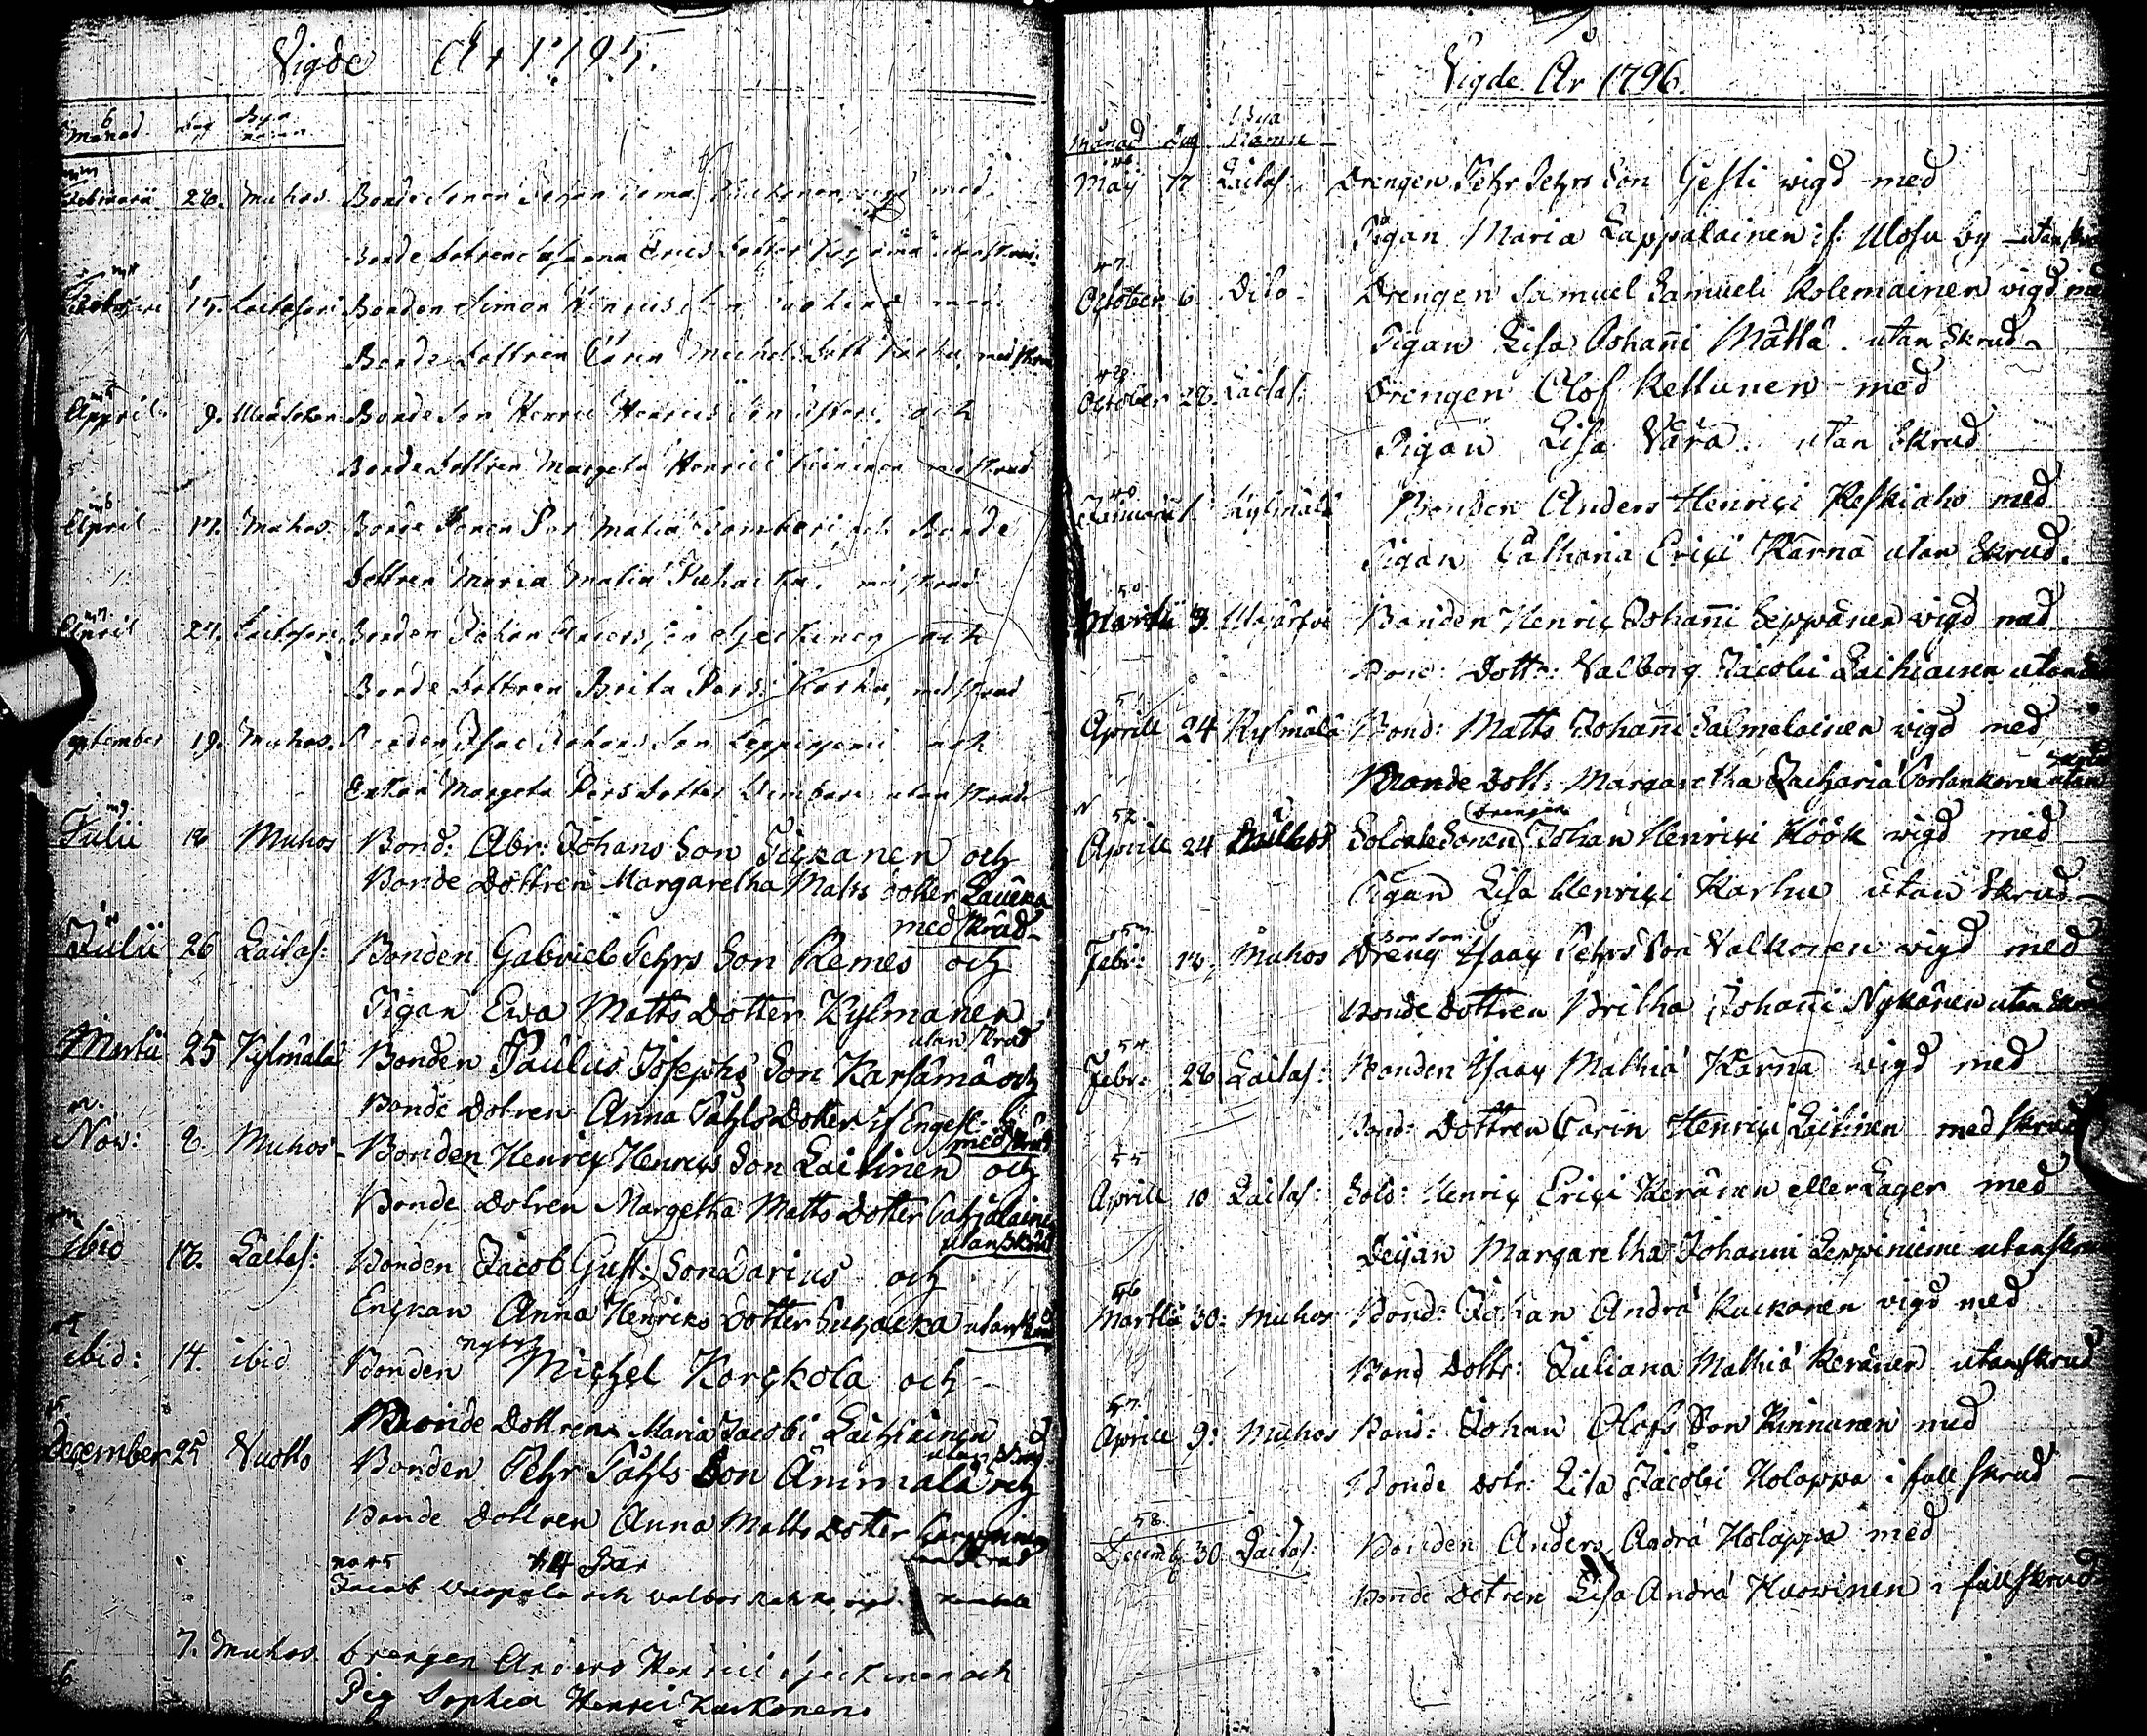 Vigde År 1795.
Månad dag Bya namn
Februarii 28. Muhos Bonde Sonen Johan med
Bonde Dottren Susanna Erics Dotter
15. Laitasari Bonden Simon Henrics Son med
Bonde Dottren Carin Michels Dott Karhu, med skrud
April 9. Bonde Son Henric Henrics Son och
Bonde Dottren Margeta Henrici Keininen med skrud
April 17. Muhos. Bonde Sonen Per Matiæ Gomberi, och Bonde
Dottren Maria Matiæ Suhacka, med skrud
April 27. Laitasari Bonden Johan Anders Son Heickinen och
Bonde Dottren Brita Pers: Karhu, med skrud
September 19. Muhos. Bonden Isac Johans Son Leppiniemi och
Enkan Margeta Pers Dotter utan skrud
Julii 18 Muhos Bond: Abr: Johans Son Tickanen och
Bonde Dottren Margaretha Matts Doter Laucka
med skrud
Julii 26 Laitas: Bonden Gabriel Pehrs Son Remes och
Pigan Ewa Matts Dotter Kylmänen
utan skrud
Martii 25 Kylmälä Bonden Paulus Josephs Son Karsämä och
Bonde Dotren Anna Påhls Dotter if Engesl. by
med skrud
Nov: 2 Muhos Bonden Henric Henrics Son Laitinen och
Bonde Dotren Margetha Matts Dotter
utan skrud
ibid 12. Laitas: Bonden Jacob Gust: Son Darius och
Enckan Anna Henriks Dotter Suhacka utan skrud
ibid: 14. ibid Bonden nybyg Michel Korckola och
Bonde Dottren Maria Jacobi Laihiainen
utan skrud
December 25 Vuotto Bonden Pehr Påhls Son Ämmälä och
Bonde Dottren Anna Matts Doter
no 45 14 Par
Jacob Vuopala och Valbor
7. Muhos drengen Anders Henrici Heickinen och
Pig Sophia Henrici Kuckonen
Vigde År 1796.
Månad Dag Bya Namn
46
Maij 17 Laitas: Drengen Pehr Pehrs Son Gesti wigd med
Pigan Maria Lappalainen if: Ulosu by utan skrud
47
October 6 Dito Drengen Samuel Samueli Kolemainen vigd med
Pigan Lisa Johañi Mättä. utan Skrud
48
October 28. Laitas: Drengen Olof Keltunen med
Pigan Lisa Vära. utan Skrud
49
Januarii 1 Kylmälä Bonden Anders Henrici Keskiaho med
Pigan Catharia Erici Kärnä utan Skrud.
50
Martii 3. Utajärfvi Bonden Henric Johañi Seppänen vigd med
Bond: Dottr: Valborg Jacobi Laihiainen utan
51
Aprill 24 Kylmälä Bond: Matts Johañi Salmelainen vigd med
Bonde Dott: Margaretha Zachariæ utan
52
Aprill 24 Muhos Soldate Sonen drengen Johan Henrici Höök wigd med
Pigan Lisa Henrici Karhu utan Skrud
53
Febr: 18. Muhos Dreng Bon Son Isaac Pehrs Son Valkonen wigd med
Bonde Dottren Britha Johañi Nykänen utan Skrud
54
Febr: 28 Laitas: Bonden Isaac Mathiæ Kärnä wigd med
Bond: Dottren Carin Henrici Laitinen med Skrud
55
Aprill 10 Laitas: Sold: Henric Erici Keränen eller Lager med
Deijan Margaretha Johanni Leppiniemi utan skrud
56
Martii 30: Muhos Bond: Johan Andræ Kuckonen vigd med
Bond Dottr: Juliana Mathiæ Keränen utan skrud
57
Aprill 9: Muhos Bond: Johan Olofs Son Kinnunen med
Bonde Dotr: Lisa Jacobi Holappa i full skrud
58
Decemb: 30 Laitas: Bonden Anders Andræ Holappa med
Bonde Dotren Lisa Andræ Huovinen i full skrud